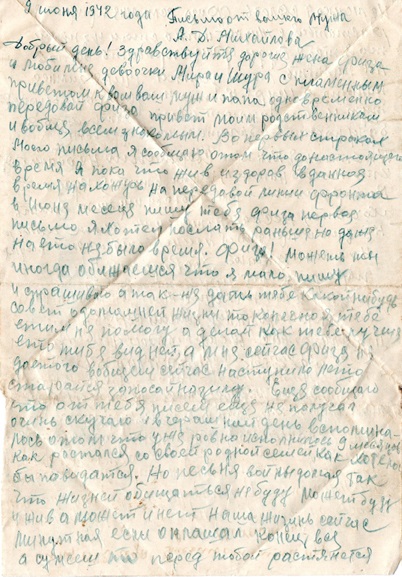 9 июня 1942 года Письмо от вашего мужа
А. Д. Михайлова
Добрый день! Здравствуйте дорогие жена Физа
и любимые девочки Мира и Шура с пламенным
приветом к вам ваш муж и папа одновременно
передовай Физа привет моим родственникам
и вобщея всем знакомым. Во первых строках
моего письма я сообщаю о том что до настоящего
время я пока что жив и здоров в данная
время нахожусь на передовой линии фронта
в Июня месеце пишу тебя Физа первоя
письмо я хотел послать раньше но даже
на ето не было время. Физа! Можеть ты
иногда обижаешся что я мало пишу
и спрашиваю а так-не дать тебе какой нибудь
совет о домашней жизни то конечно я тебе
етим не помогу а делай как тебе лучше
ето тибе видней а мне сейчас Физа
вобщем сейчас наступило лето
Ещея сообщаю
что от тебя писем ещея не получал
очень скучаю и вчерашний день вспомина-
лось о том что уже ровна исполнилось 9 месяцев
как растался со своей родной семьей как
бы повидатся. Но песья войны долгая так
что жизней обищаться не буду может буду
и жив а может и нет наша жизнь сейчас
минутная если оплошал конец вся
а сумеем то перед тобой растянется